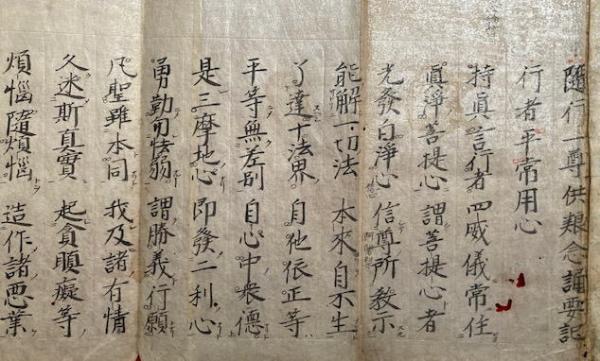 隨行一尊供粮念誦要記
行者平常用心
持眞言行者 四威儀常住
眞淨菩提心 謂菩提心者
光發白淨心 信尊所教示
能解一切法 本來自不生
了達十法界 自他依正等
平等無差別 自心中衆德
是三摩地心 即發二利心
勇勤勿怯弱 謂勝義行願
凡聖雖本同 我及諸有情
久迷斯真實 起貪瞋癡等
煩惱隨煩惱 造作諸惡業